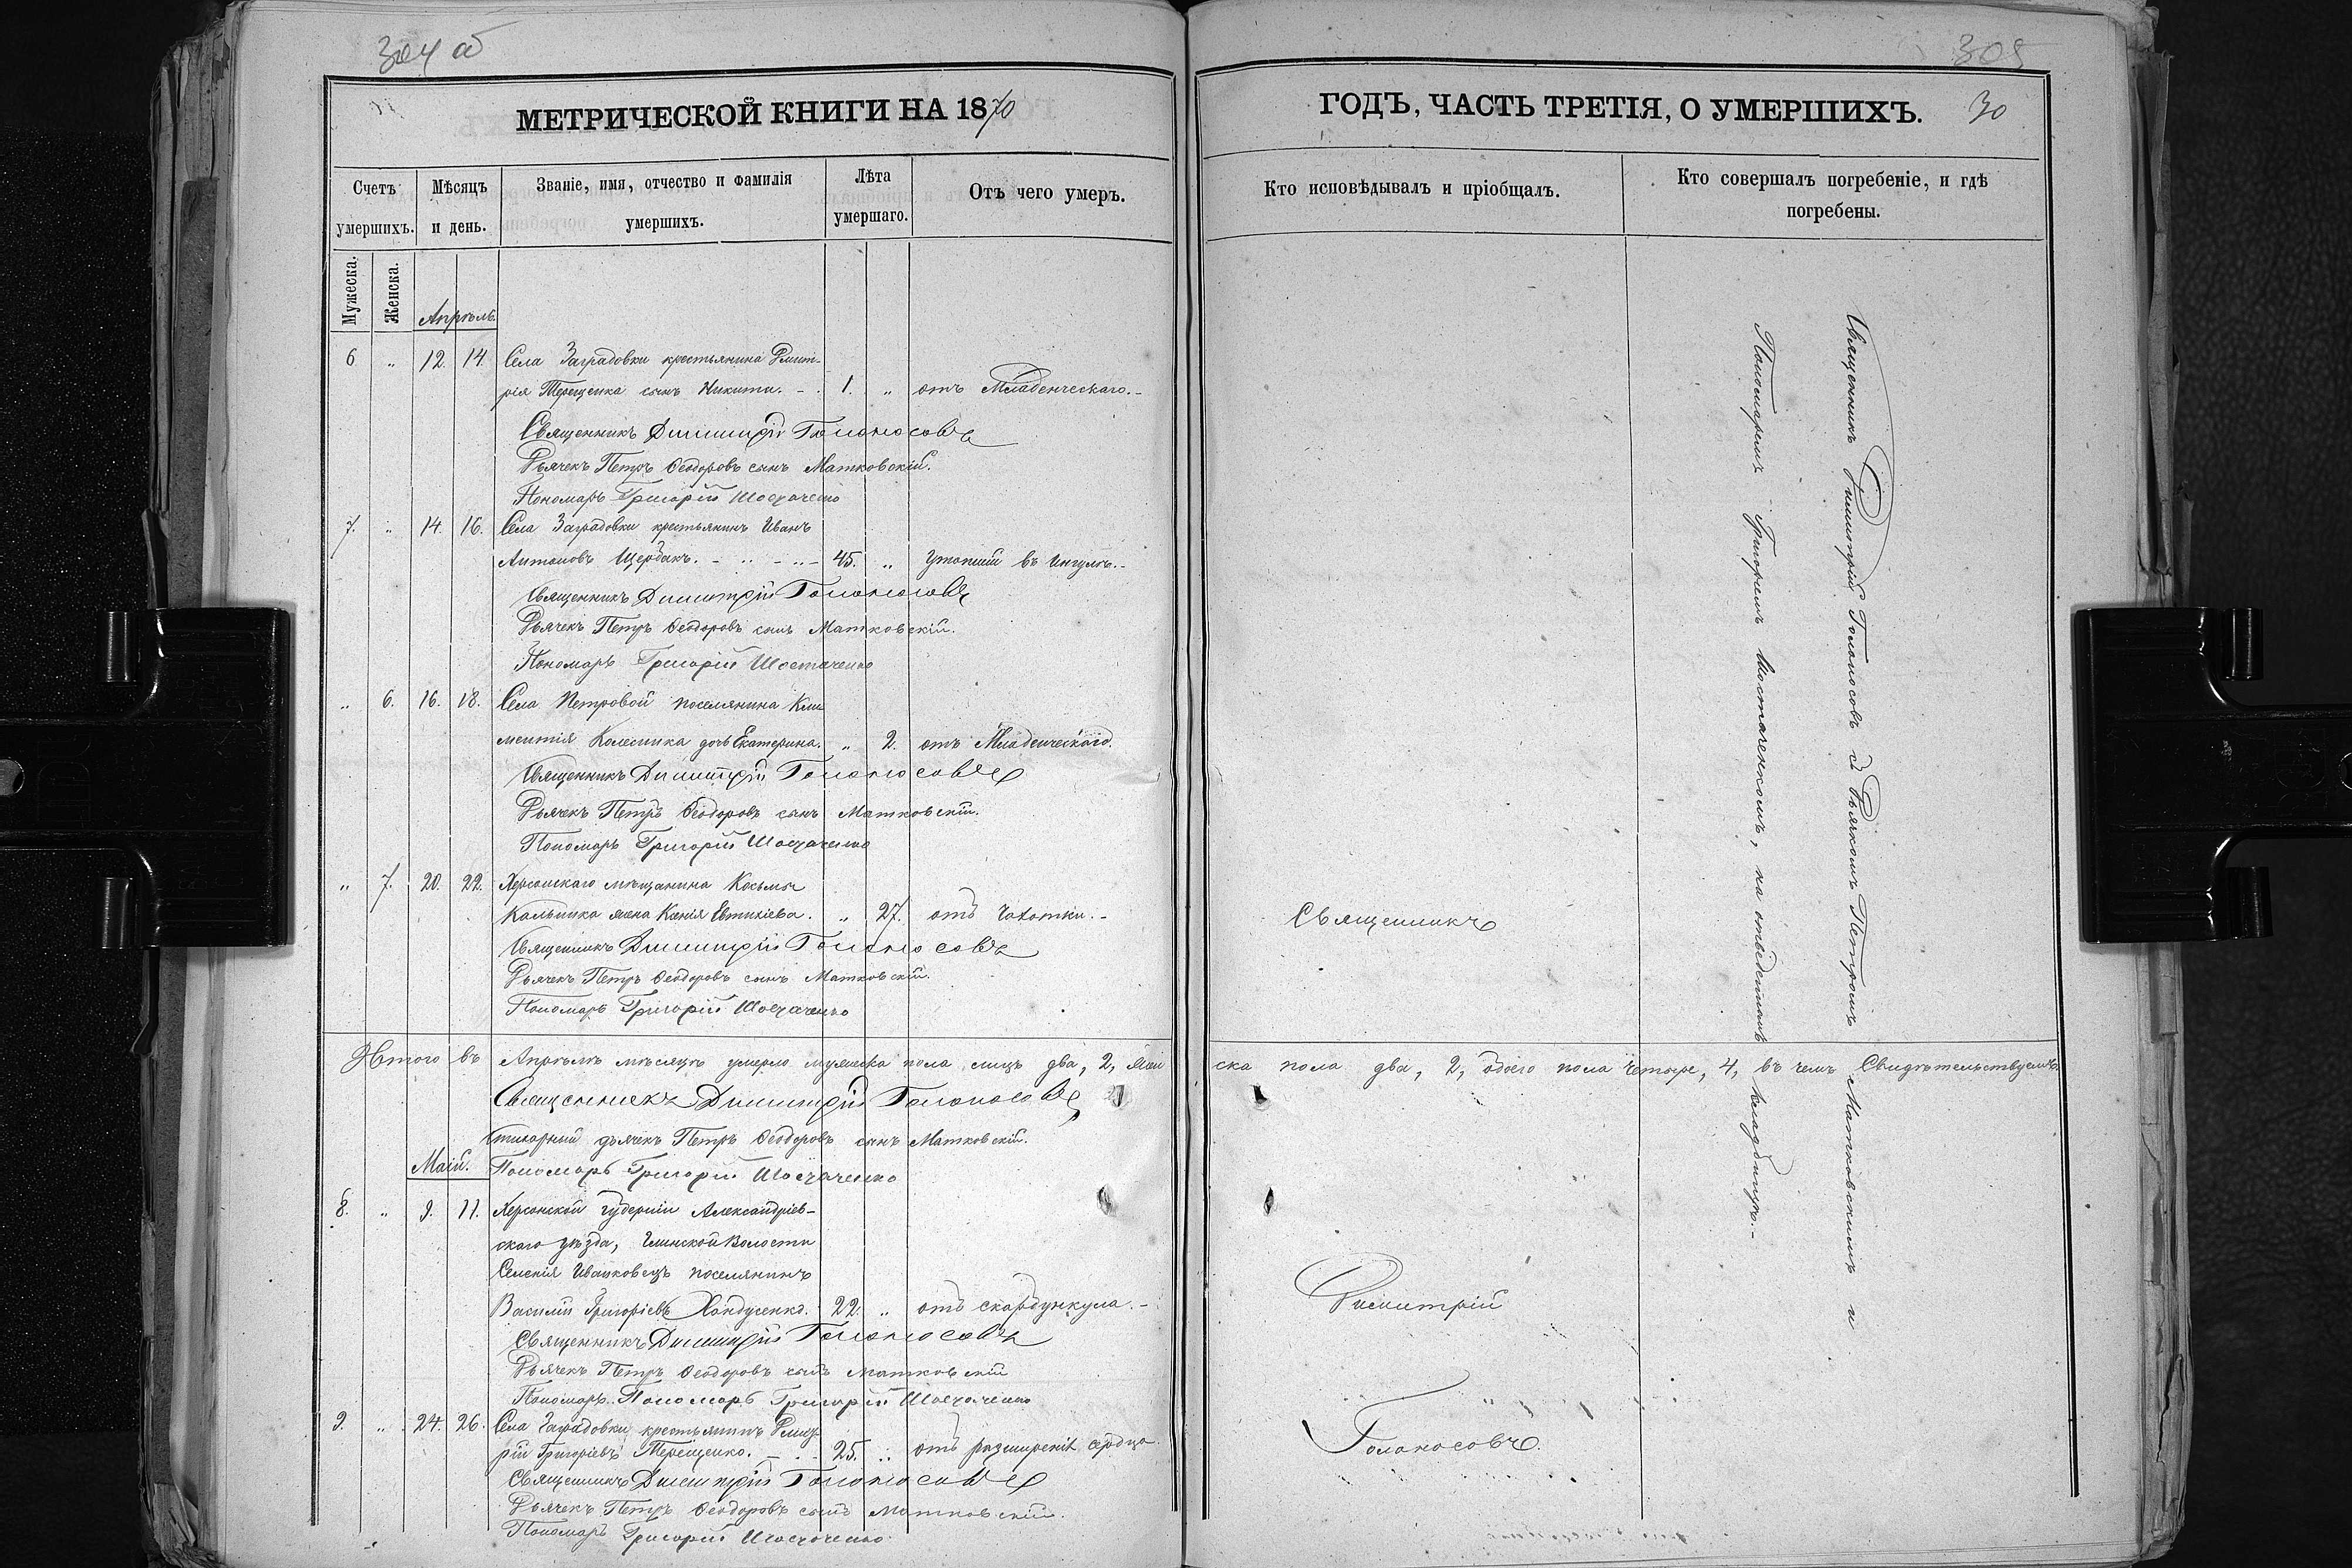 304 об
305
МЕТРИЧЕСКОЙ КНИГИ НА 1870
ГОДЪ, ЧАСТЬ ТРЕТІЯ, О УМЕРШИХЪ. 30
Счетъ умершихъ.
Мѣсяцъ и день.
Званіе, имя, отчество и фамилія умершихъ.
Лѣта умершаго.
Отъ чего умеръ.
Кто исповѣдывалъ и пріобщалъ.
Кто совершалъ погребеніе, и гдѣ погребены.
Мужеска.
Женска.
Апрѣль
6 „ 12. 14. Села Заградовки крестьянина Дмит-
рія Терещенка сынъ Никита. - 1. „ отъ Младенческаго. -
Священникъ Димитрій Голоносовъ
Дьячекъ Петръ Ѳеодоровъ сынъ Матковскій.
Пономарь Григорій Шостаченко
7. „ 14. 16. Села Заградовки крестьянинъ Иванъ
Антоновъ Щербакъ. - 45. „ Утопшій въ Ингулѣ. -
Священникъ Димитрій Голоносовъ
Дьячекъ Петръ Ѳеодоровъ сынъ Матковскій.
Пономарь Григорій Шостаченко
„ 6. 16. 18. Села Петровой поселянина Кли
ментія Колесника дочь Екатерина. „ 2. отъ Младенческаго.
Священникъ Димитрій Голоносовъ
Дьячекъ Петръ Ѳеодоровъ сынъ Матковскій.
Пономарь Григорій Шостаченко
„ 7. 20. 22. Херсонскаго мѣщанина Косьмы
жена Ксенія Евтихіева. „ 27. отъ Чахотки. -
Священникъ Димитрій Голоносовъ
Дьячекъ Петръ Ѳеодоровъ сынъ Матковскій.
Пономарь Григорій Шостаченко
Итого въ Апрѣлѣ мѣсяцѣ умерло мужеска пола лицъ два, 2, жен
ска пола два, 2, обоего пола четыре, 4, въ чемъ Свидѣтельствуемъ.
Священникъ Димитрій Голоносовъ
Стихарный дьячекъ Петръ Ѳеодоровъ сынъ Матковскій.
Пономарь Григорій Шостаченко
Маій.
8. „ 9. 11. Херсонской губерніи Александрів-
скаго уѣзда, Глинской Волости
Селенія Иванковецъ поселянинъ
Василій Григорьевъ Хандусенко. 22. „ отъ скарбункула. -
Священникъ Димитрій Голоносовъ
Дьячекъ Петръ Ѳеодоровъ сынъ Матковскій
Пономарь. Пономарь Григорій Шостаченко
9. „ 24. 26. Села Заградовки крестьянинъ Дмит-
рій Григоріевъ Терещенко. - 25. „ отъ разширенія сердца.
Священникъ Димитрій Голоносовъ
Дьячекъ Петръ Ѳеодоровъ сынъ Матковскій.
Пономарь Григорій Шостаченко
Священникъ
Димитрій
Голоносовъ.
Священникъ Димитрій Голоносовъ съ Дьячкомъ Петромъ Матковскимъ и
Пономаремъ Григоріемъ Шостаченкомъ, на отведенномъ кладбищѣ. -